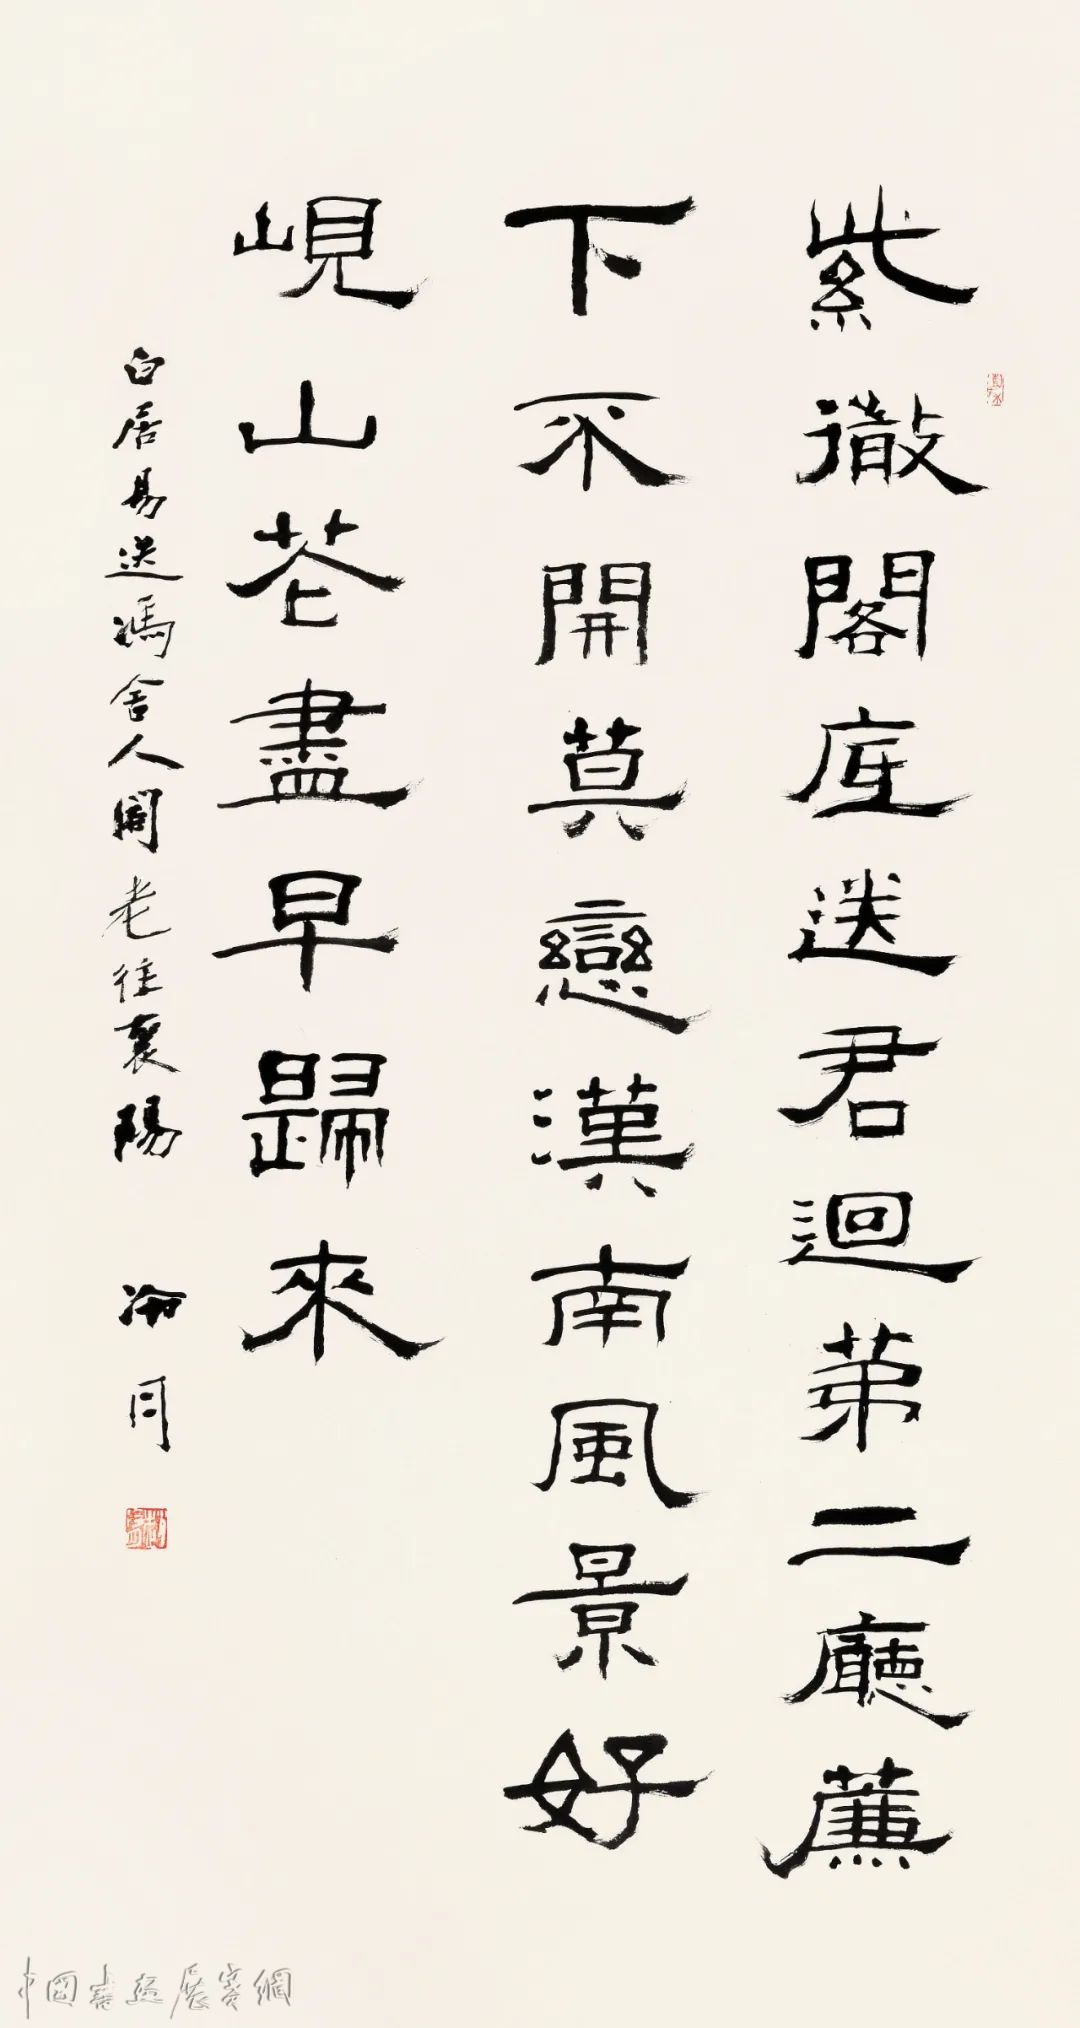 紫微閣底送君迴第二廳簾
下不開莫戀漢南風景好
峴山花盡早歸來
白居易送馮舍人閣老往襄陽
中國書畫展賽網